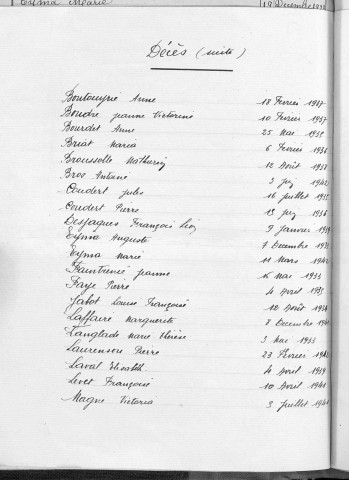 Eyma Marie 12 Décembre
Décès (suite)
Anne 18 Février 1937
Boudre Jeanne Victorine 10 Février 1937
Bourdet Anne 25 Mai 1939
Briat Maria 6 Février 1936
Brousolle Mathurin 12 Août 1938
Bros Antoine 3 1942
Coudert Jules 16 juillet
Coudert Pierre 13 1936
Desjaques François 9 janvier
Eyma Auguste 7 Décembre
Eyma Marie 11 Mars 1942
Jeanne 16 Mai 1933
Faye Pierre 4 Avril 1937
Jabot Louise Françoise 12 Août
Laffaire Marguerite 8 Décembre
Langlade Marie Thérèse 3 Mai 1933
Laurenson Pierre 23 Février
Laval Elisabeth 4 Avril 1939
Levet Françoise 10 Avril 1941
Magne Victoria 3 Juillet